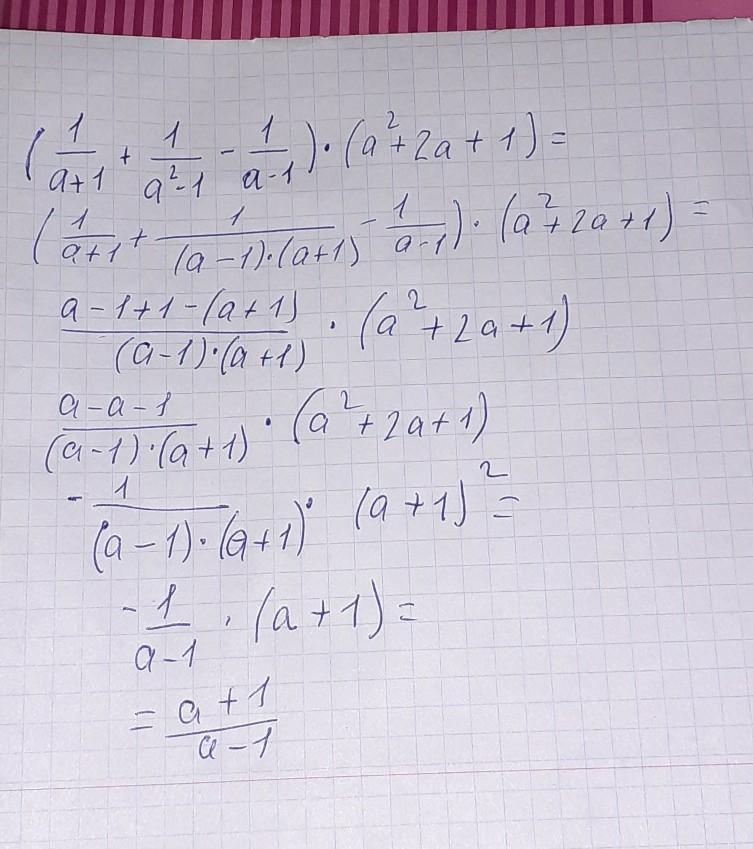 (1/(a+1) + 1/(a²-1) - 1/(a-1)) · (a²+2a+1) =
(1/(a+1) + 1/((a-1)·(a+1)) - 1/(a-1)) · (a²+2a+1) =
(a-1+1-(a+1))/((a-1)·(a+1)) · (a²+2a+1)
(a-a-1)/((a-1)·(a+1)) · (a²+2a+1)
- 1/((a-1)·(a+1)) · (a+1)² =
- 1/(a-1) · (a+1) =
= (a+1)/(a-1)